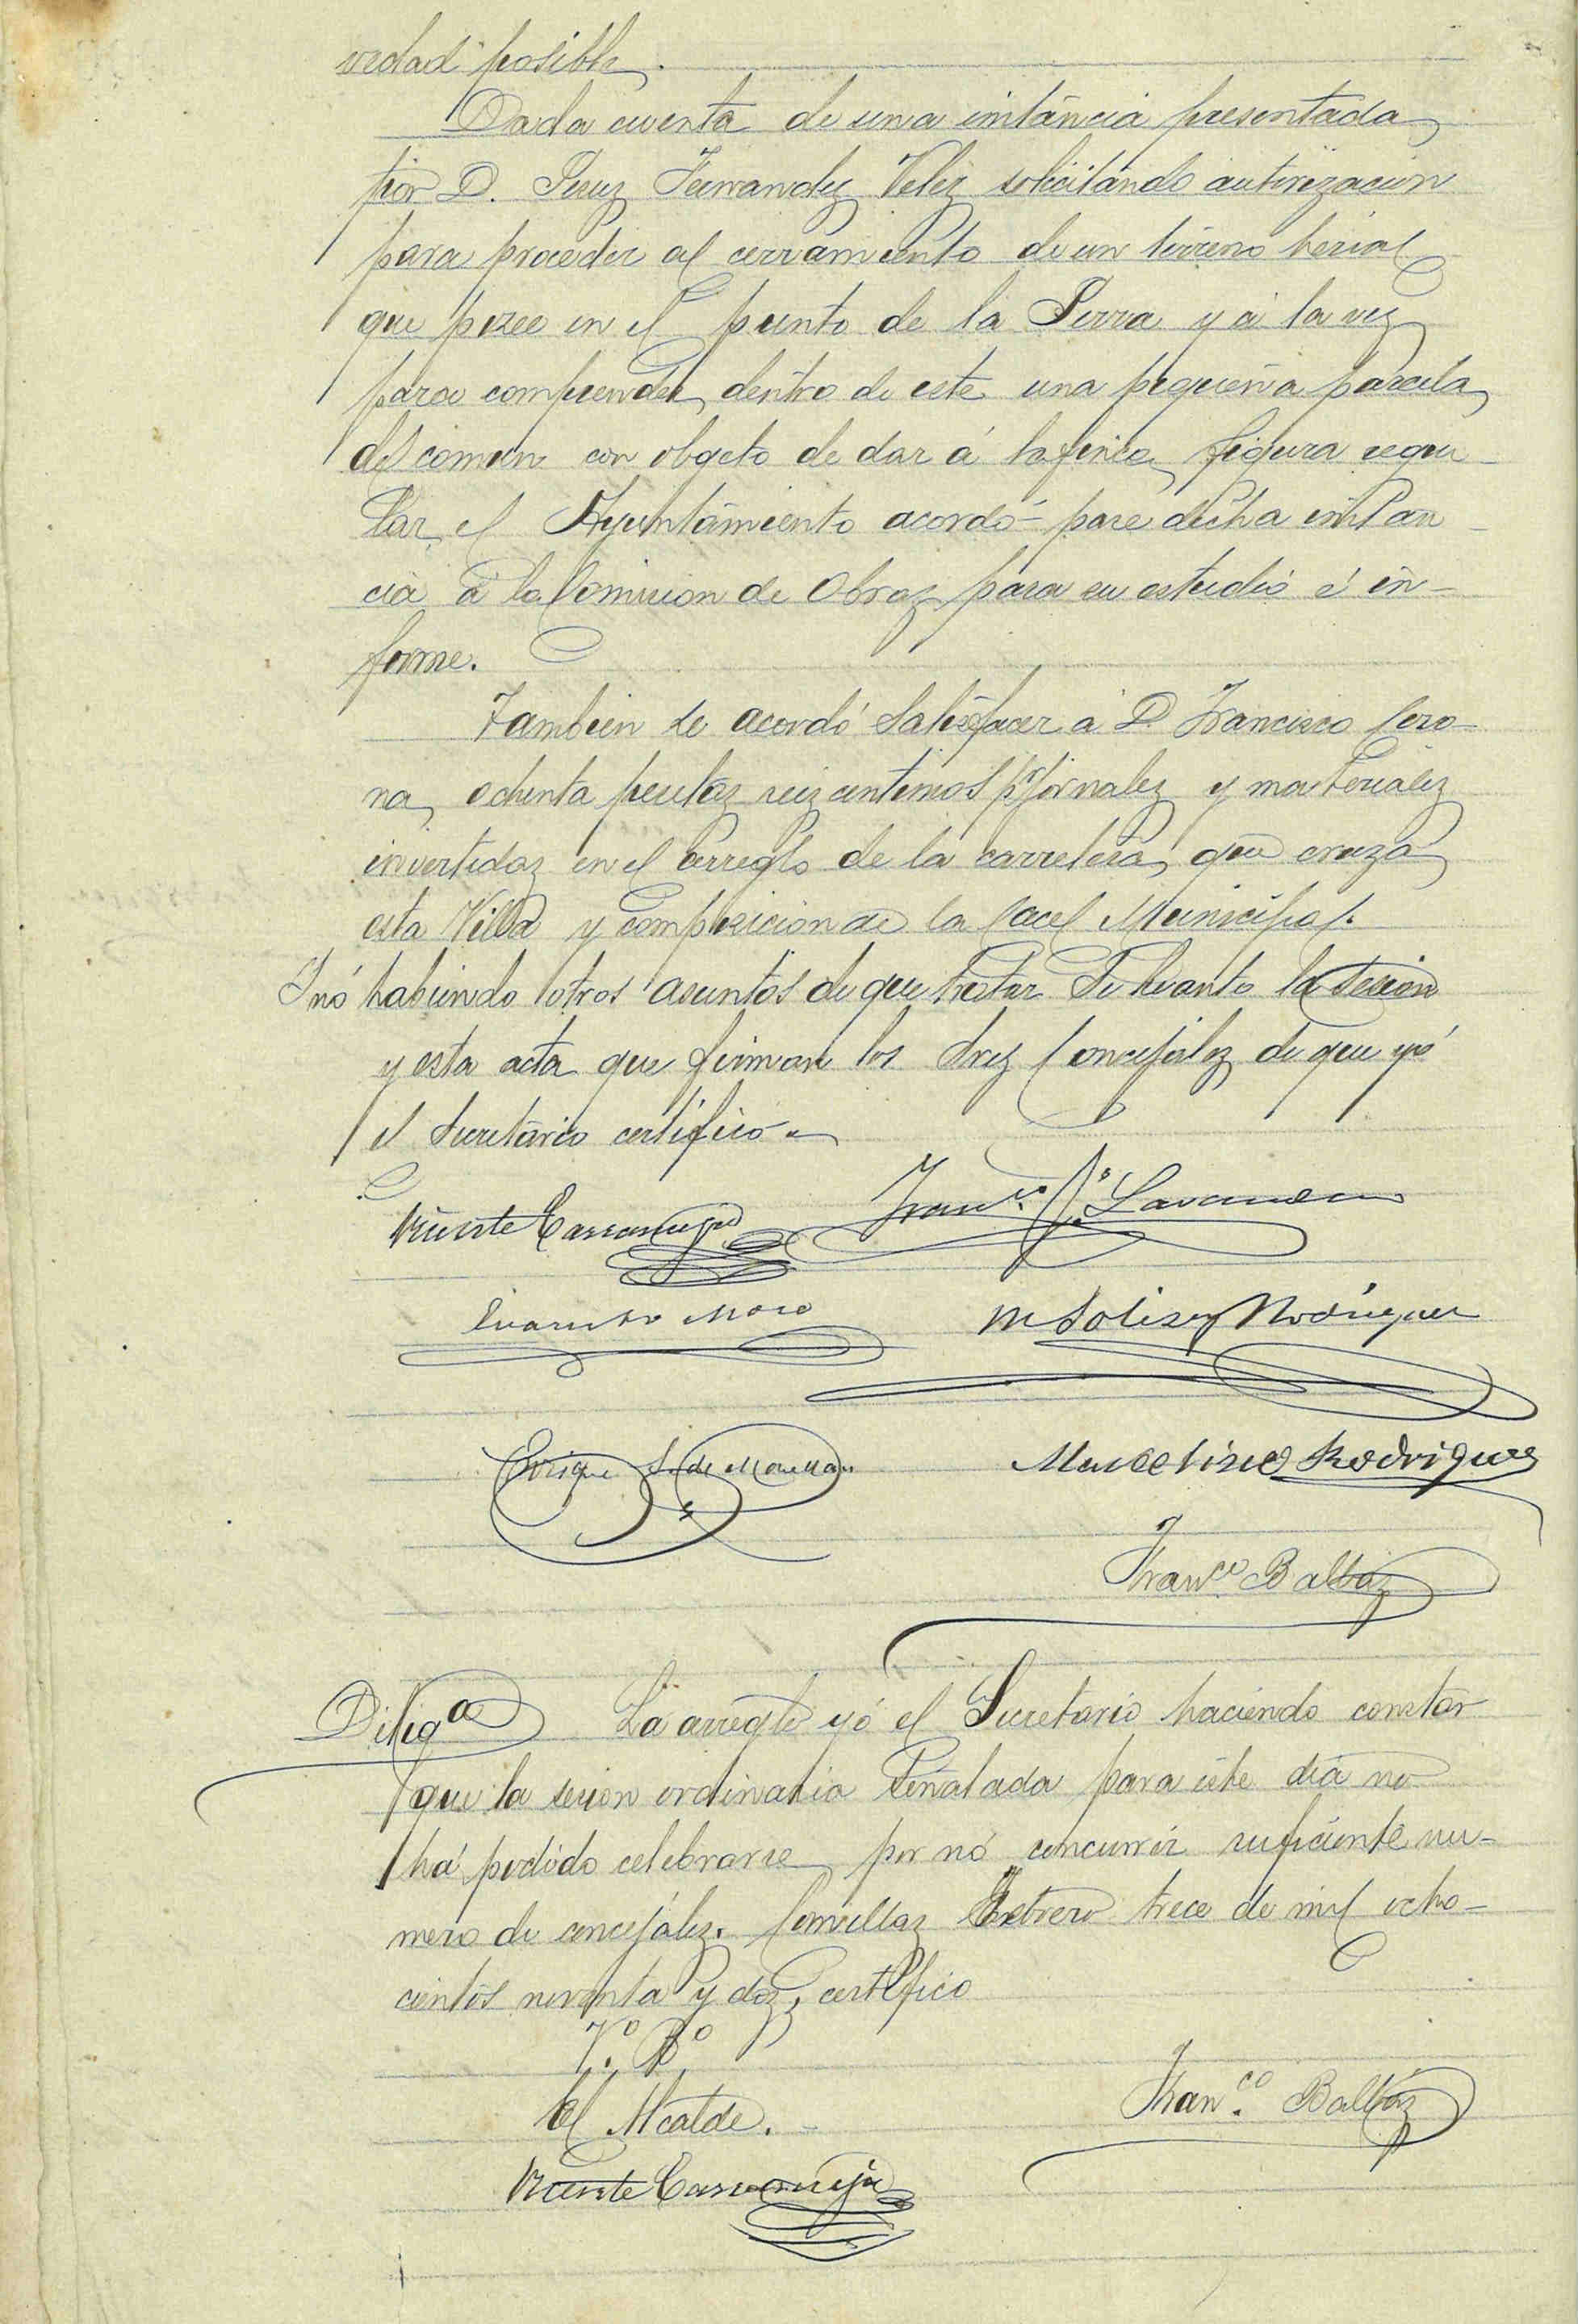 vedad posible.
Dada cuenta de una instáncia presentada
por D. Jesuz Fernandez Velez solicitando autorizacion
para proceder al cerramiento de un térreno herial
que posee en el punto de la Serra y á la vez
para comprender dentro de este una pequeña parcela
del comun con obgeto de dar á la finca figura regu-
lar, el Ayuntámiento acordó pase dicha instan-
cia á la Comision de Obraz para su estudio é in-
forme.
Tambien se acordó Satisfacer á D Francisco Coro-
na, ochenta pesetaz seiz centimos pr jornalez y materialez
invertidaz en el arreglo de la carretera que cruza
esta Villa y composicion de la Carcel Municipal.
Y nó habiendo otros asuntos de que tratar Se levanto la sesion
y esta acta que firman los Srez Concejalez de que yó
el Secretário certifico
Vicente
Franco Lavandera
Evaristo Moro
M Solis y Rodriguez
Enrique S. de Movellan
Marcelino Rodriguez
Franco Balbáz
Diliga La arreglo yó el Secretario haciendo constar
que la sesion ordinaria Señalada para este dia no
há podido celebrarse por nó concurrir suficiente nu-
mero de concejález. Comillaz trece de mil ocho-
cientos noventa y doz, certifico
V.º Bº
El Alcalde.
Franco Balbáz
Vicente